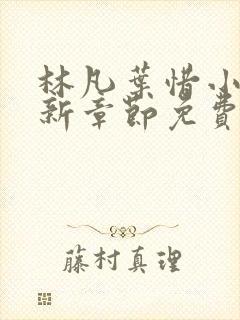 林凡葉惜小
新章節免費
藤村真理